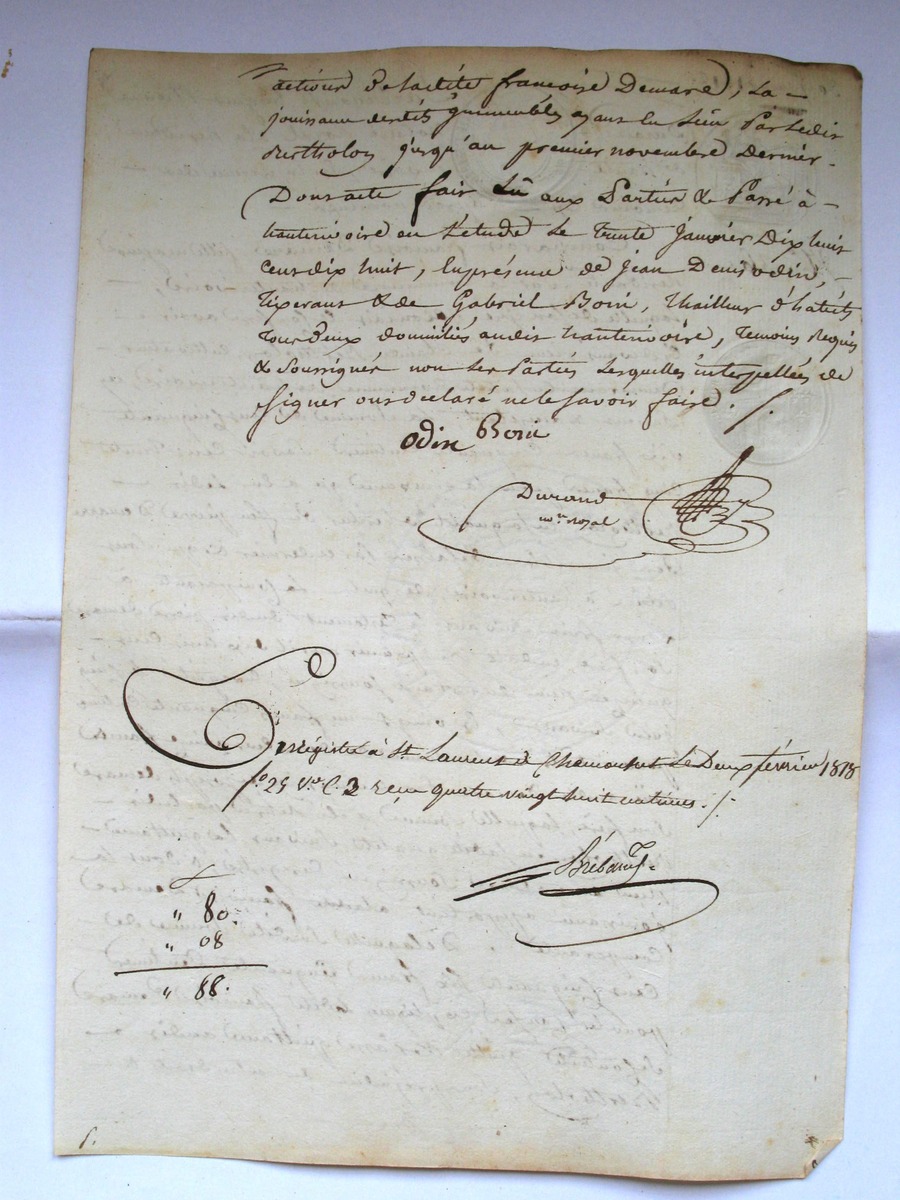 actions de ladite françoise Demard, La
jouissance desdits immeubles ayant eu Lieu Par Ledit
Bertholon jusqu'au premier novembre Dernier.
Dont acte fait Lû aux Parties & Passé à
hauterivoire en l'étude Le Trente Janvier Dix huit
Cent dix huit, En présence de Jean Denis odin,
Tixerant & de Gabriel Boiri, Thailleur d'habits
Tous deux domiciliés audit hauterivoire, Temoins Requis
& Soussignés non Les Parties Lesquelles interpellées de
Signer ont declaré ne le Savoir faire. /.
odin Boiri
Durand
no.re Royal
Enrégistré à St Laurent de Chamousset Le Deux février 1818
f.o 25 V.o C. 2 reçu quatre vingt huit centimes. /.
" 80.
" 08
" 88.